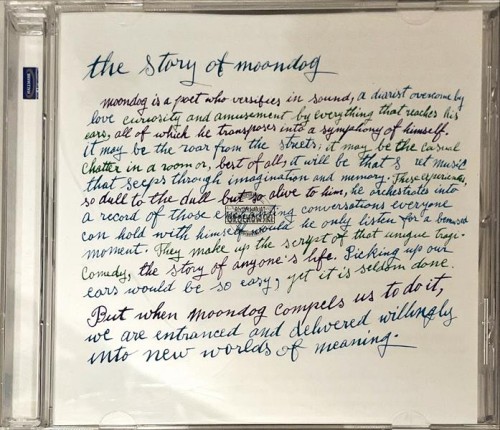 the story of moondog
moondog is a poet who versifies in sound, a diarist overcome by
love curiosity and amusement by everything that reaches his
ears, all of which he transposes into a symphony of himself.
it may be the roar from the streets; it may be the casual
chatter in a room or, best of all, it will be that s ret music
that seeps through imagination and memory. These experiences,
so dull to the dull but so alive to him, he orchestrates into
a record of those e ting conversations everyone
can hold with himself would he only listen for a
moment. They make up the script of that unique tragi-
comedy, the story of anyone's life. Picking up our
ears would be so easy, yet it is seldom done.
But when moondog compels us to do it,
we are entranced and delivered willingly
into new worlds of meaning.